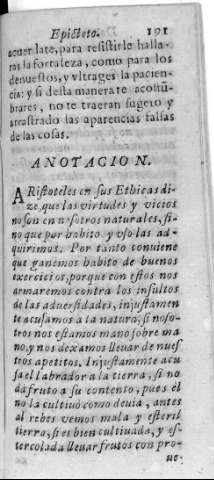 Epicteto. 191
acuer late, para resistirle halla-
ras la fortaleza, como para los
denuestos, y vltrages la pacien-
cia: y si desta manera te acostũ-
brares, no te traeran sugeto y
arrastrado las aparencias falsas
de las cosas.
ANOTACION.
ARistoteles en sus Ethicas di-
ze, que las virtudes y vicios
no son en nosotros naturales, si-
no que por habito y vso las ad-
quirimos. Por tanto conuiene
que ganemos habito de buenos
exercicios, porque con estos nos
armaremos contra los insultos
de las aduersidades, injustamen
te acusamos a la natura, si noso-
tros nos estamos mano sobre ma
no, y nos dexamos lleuar de nues
tros apetitos. Injustamente acu
sa el labrador a la tierra, si no
da fruto a su contento, pues èl
no la cultiuò como deuia, antes
al rebes vemos mala y esteril
tierra, si es bien cultiuada, y es-
tercolada lleuar frutos con pro-
ue-